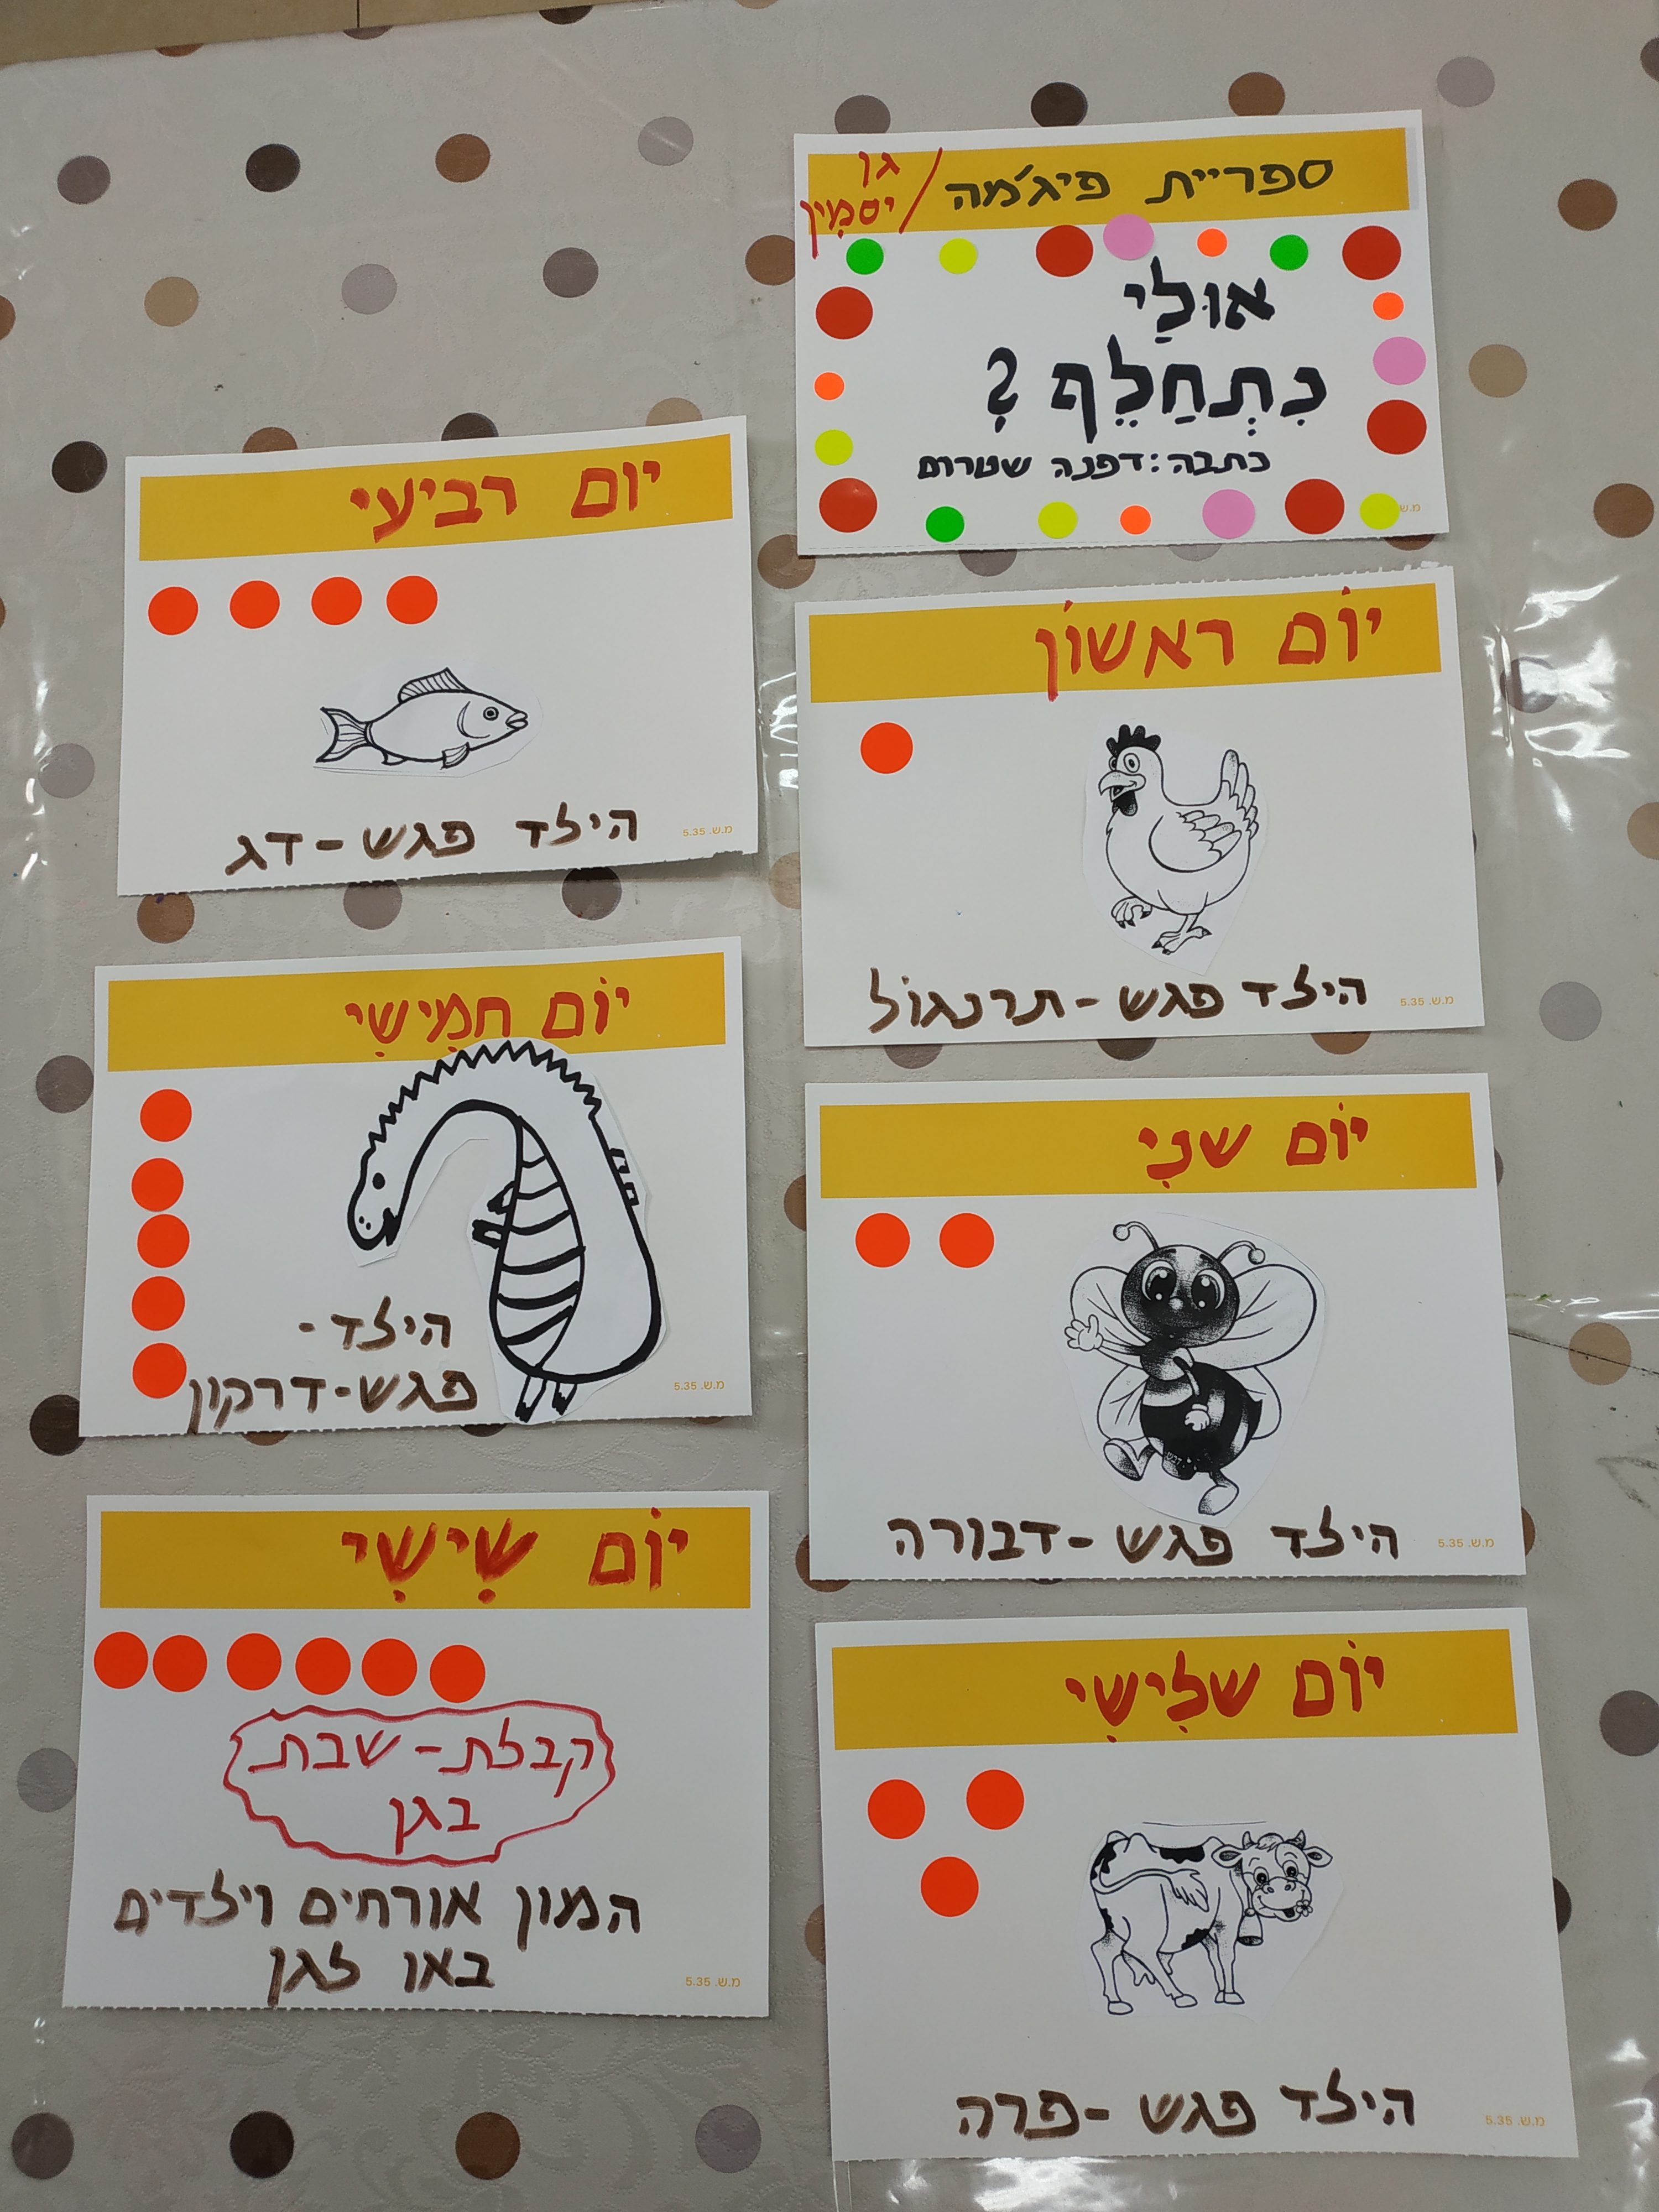 ספריית פיג'מה / גן
יסמִין
אוּלַי
כִּתְחַלֵף ?
כתבה: דפנה שטרום
מ.ש.
יוֹם ראשוֹן
היילד פגש - תרנגוֹל
מ.ש. 5.35
יוֹם שנִי
הילד פגש - דבורה
מ.ש. 5.35
יוֹם שלִישִי
הילד פגש - פרה
מ.ש. 5.35
יום רביעי
הילד פגש - דג
מ.ש. 5.35
יוֹם חמִישִי
הילד -
פגש - דרקון
מ.ש. 5.35
יוֹם שִישִי
קבלת - שבת
בגן
המון אורחים וילדים
באו לגן
מ.ש. 5.35